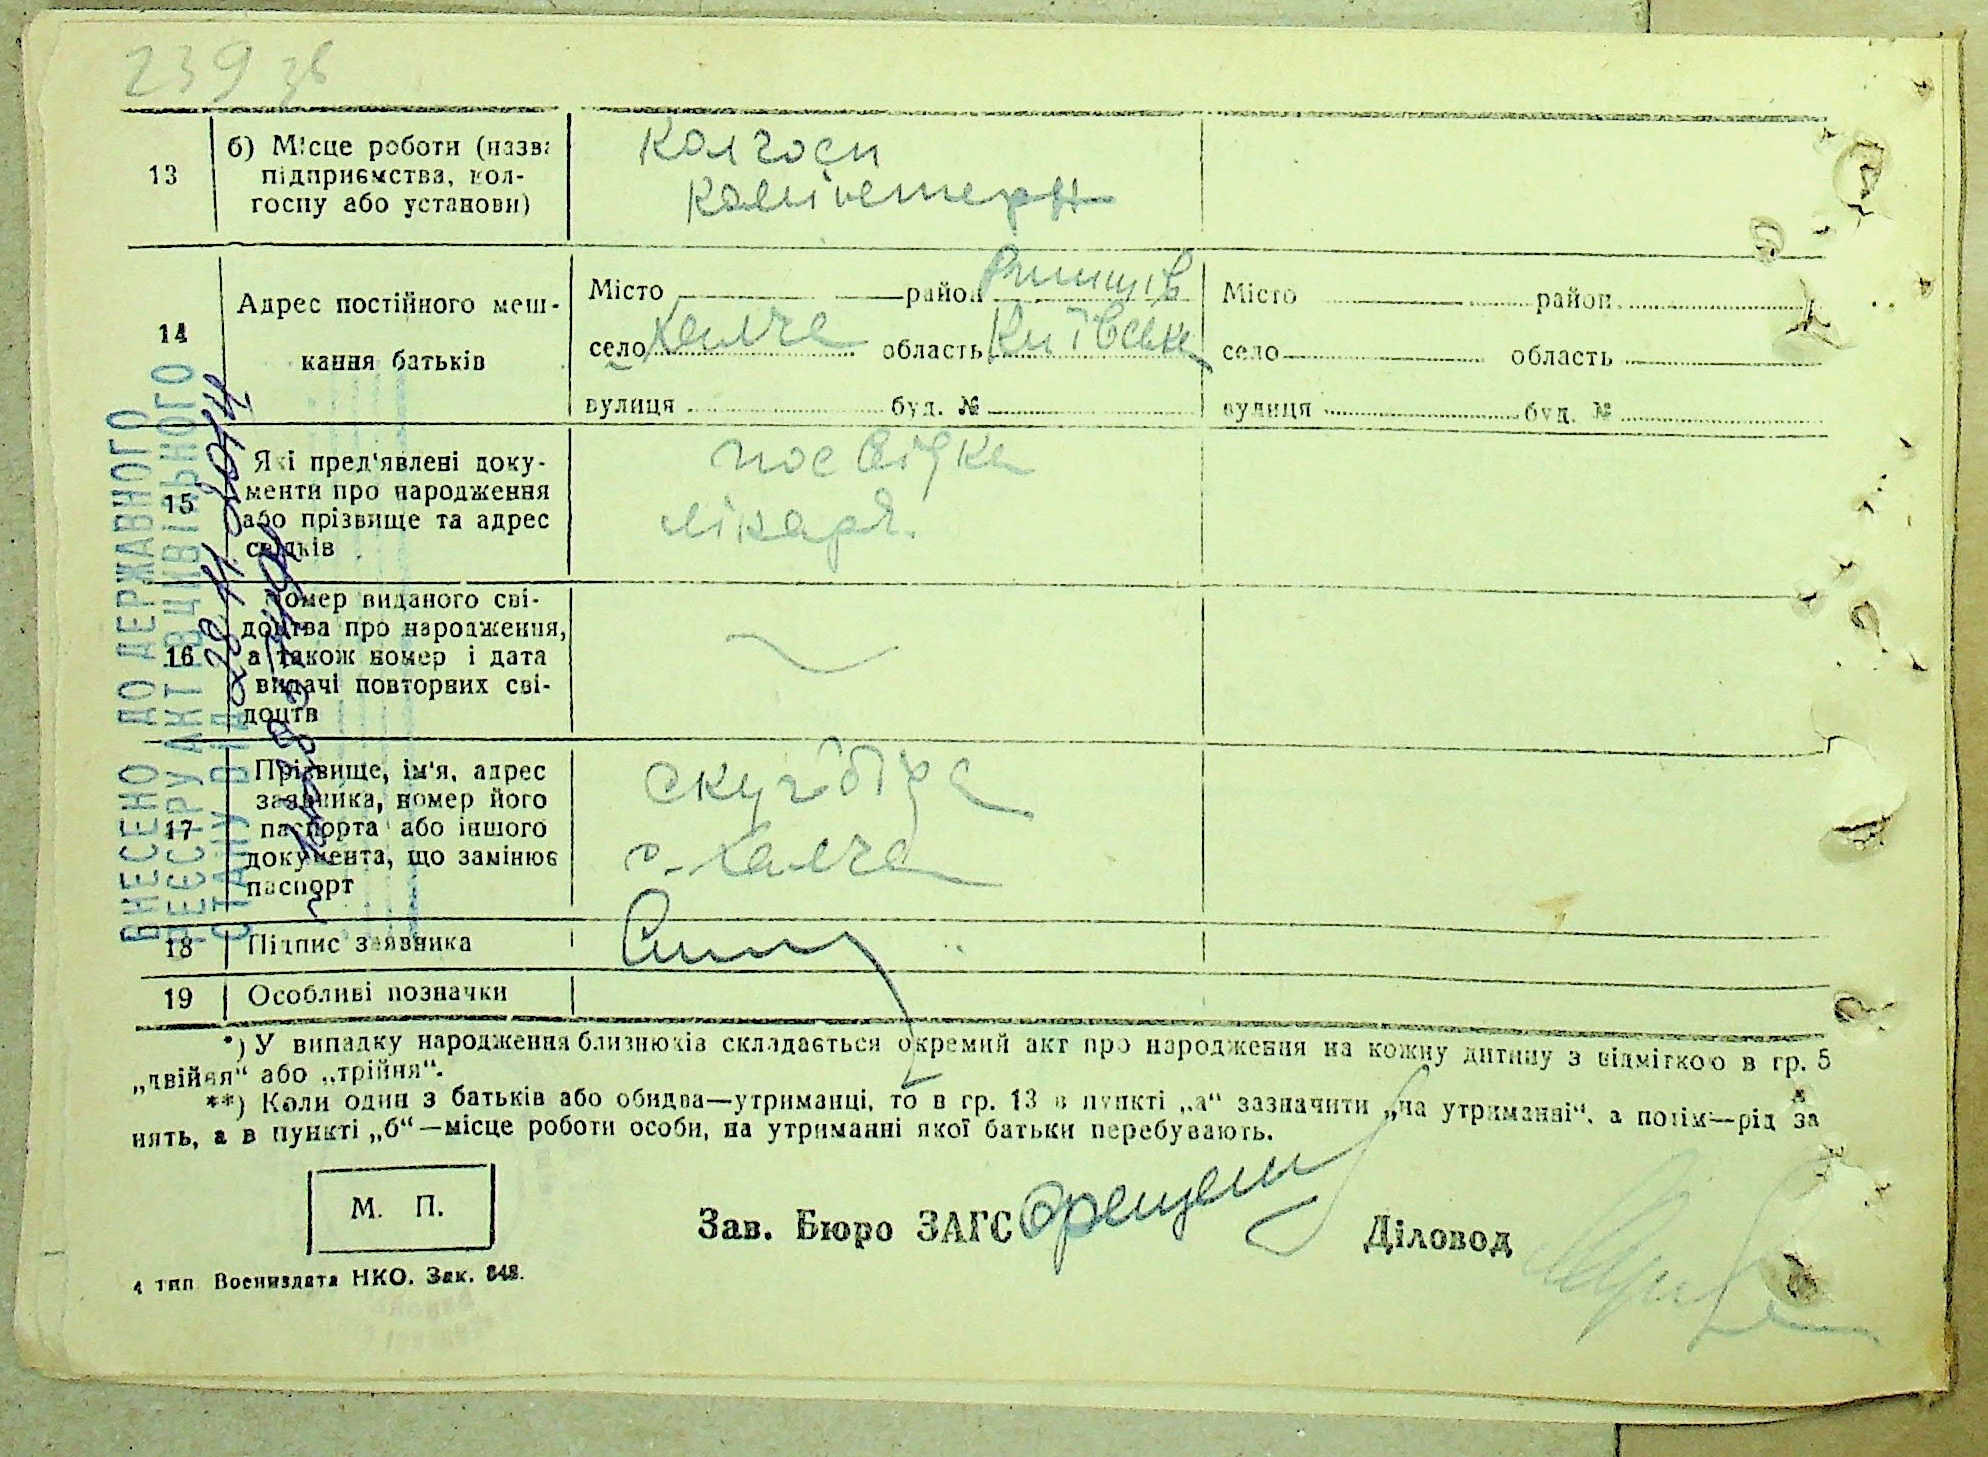 239 зв
13
б) Місце роботи (назва
підприємства, кол-
госпу або установи)
Колгосп
Комінтерн
14
Адрес постійного меш-
кання батьків
Місто район Ржищів
село Халча область Київськ
вулиця буд. №
Місто район
село область
вулиця буд. №
15
Які пред'явлені доку-
менти про народження
або прізвище та адрес
свідків
посвідка
лікаря.
16
Номер виданого сві-
доцтва про народження,
а також номер і дата
видачі повторних сві-
доцтв
17
Прізвище, ім'я, адрес
заявника, номер його
паспорта або іншого
документа, що замінює
паспорт
с. Халча
18
Підпис заявника
19
Особливі позначки
ВНЕСЕНО ДО ДЕРЖАВНОГО
РЕЄСТРУ АКТІВ ЦИВІЛЬНОГО
СТАНУ ВІД 28 11 2014
*) У випадку народження близнюків складається окремий акт про народження на кожну дитину з відміткою в гр. 5
„двійня“ або „трійня“.
**) Коли один з батьків або обидва—утриманці, то в гр. 13 в пункті „а“ зазначити „на утриманні“, а потім—рід за
нять, а в пункті „б“—місце роботи особи, на утриманні якої батьки перебувають.
М. П.
Зав. Бюро ЗАГС
Діловод
4 тип Воениздата НКО. Зак. 848.